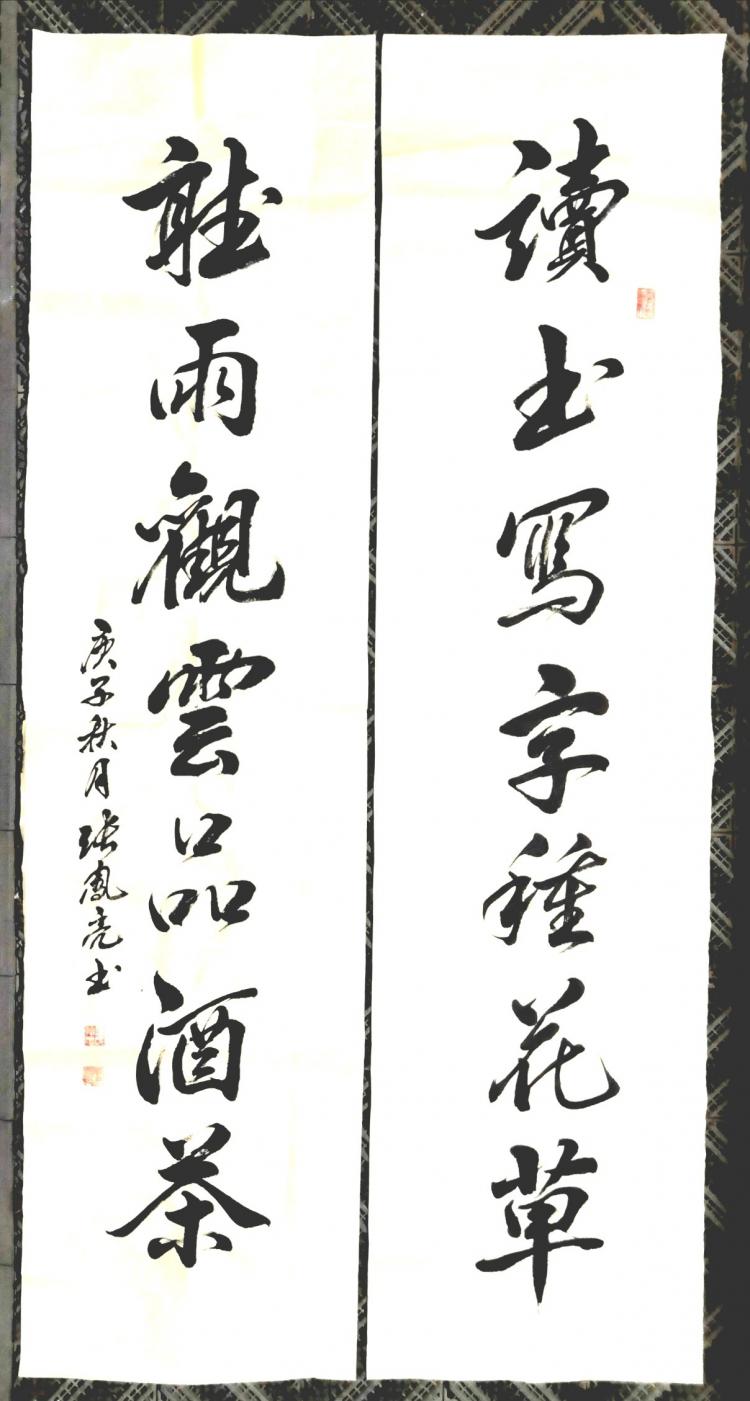 讀书寫字種花草
聽雨觀雲品酒茶
庚子秋月張鳳亮书